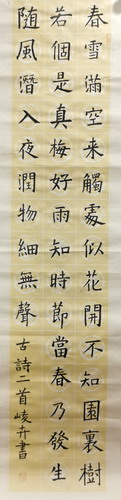 春雪滿空来觸處似花開不知園裏樹
若個是真梅好雨知時節當春乃發生
随風潛入夜潤物細無聲古詩二首崚卉書